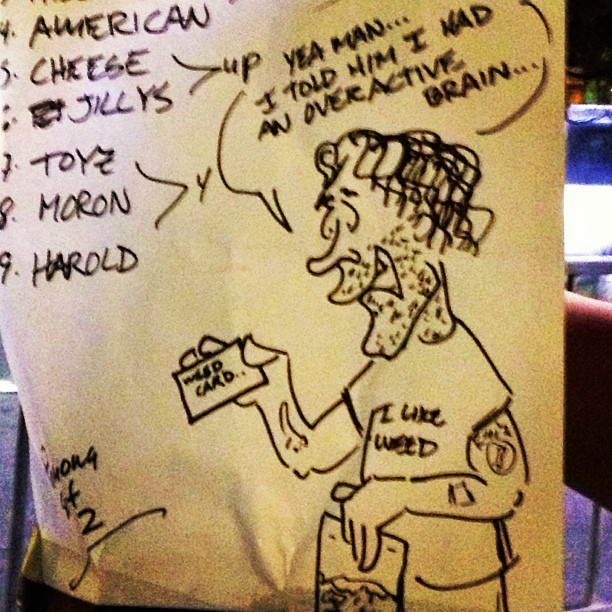 4. AMERICAN
5. CHEESE
JILLYS
up
7. TOYZ
8. MORON
Y
9. HAROLD
YEA MAN...
I TOLD HIM I HAD
AN OVERACTIVE
BRAIN...
WEED
CARD..
I LIKE
WEED
2